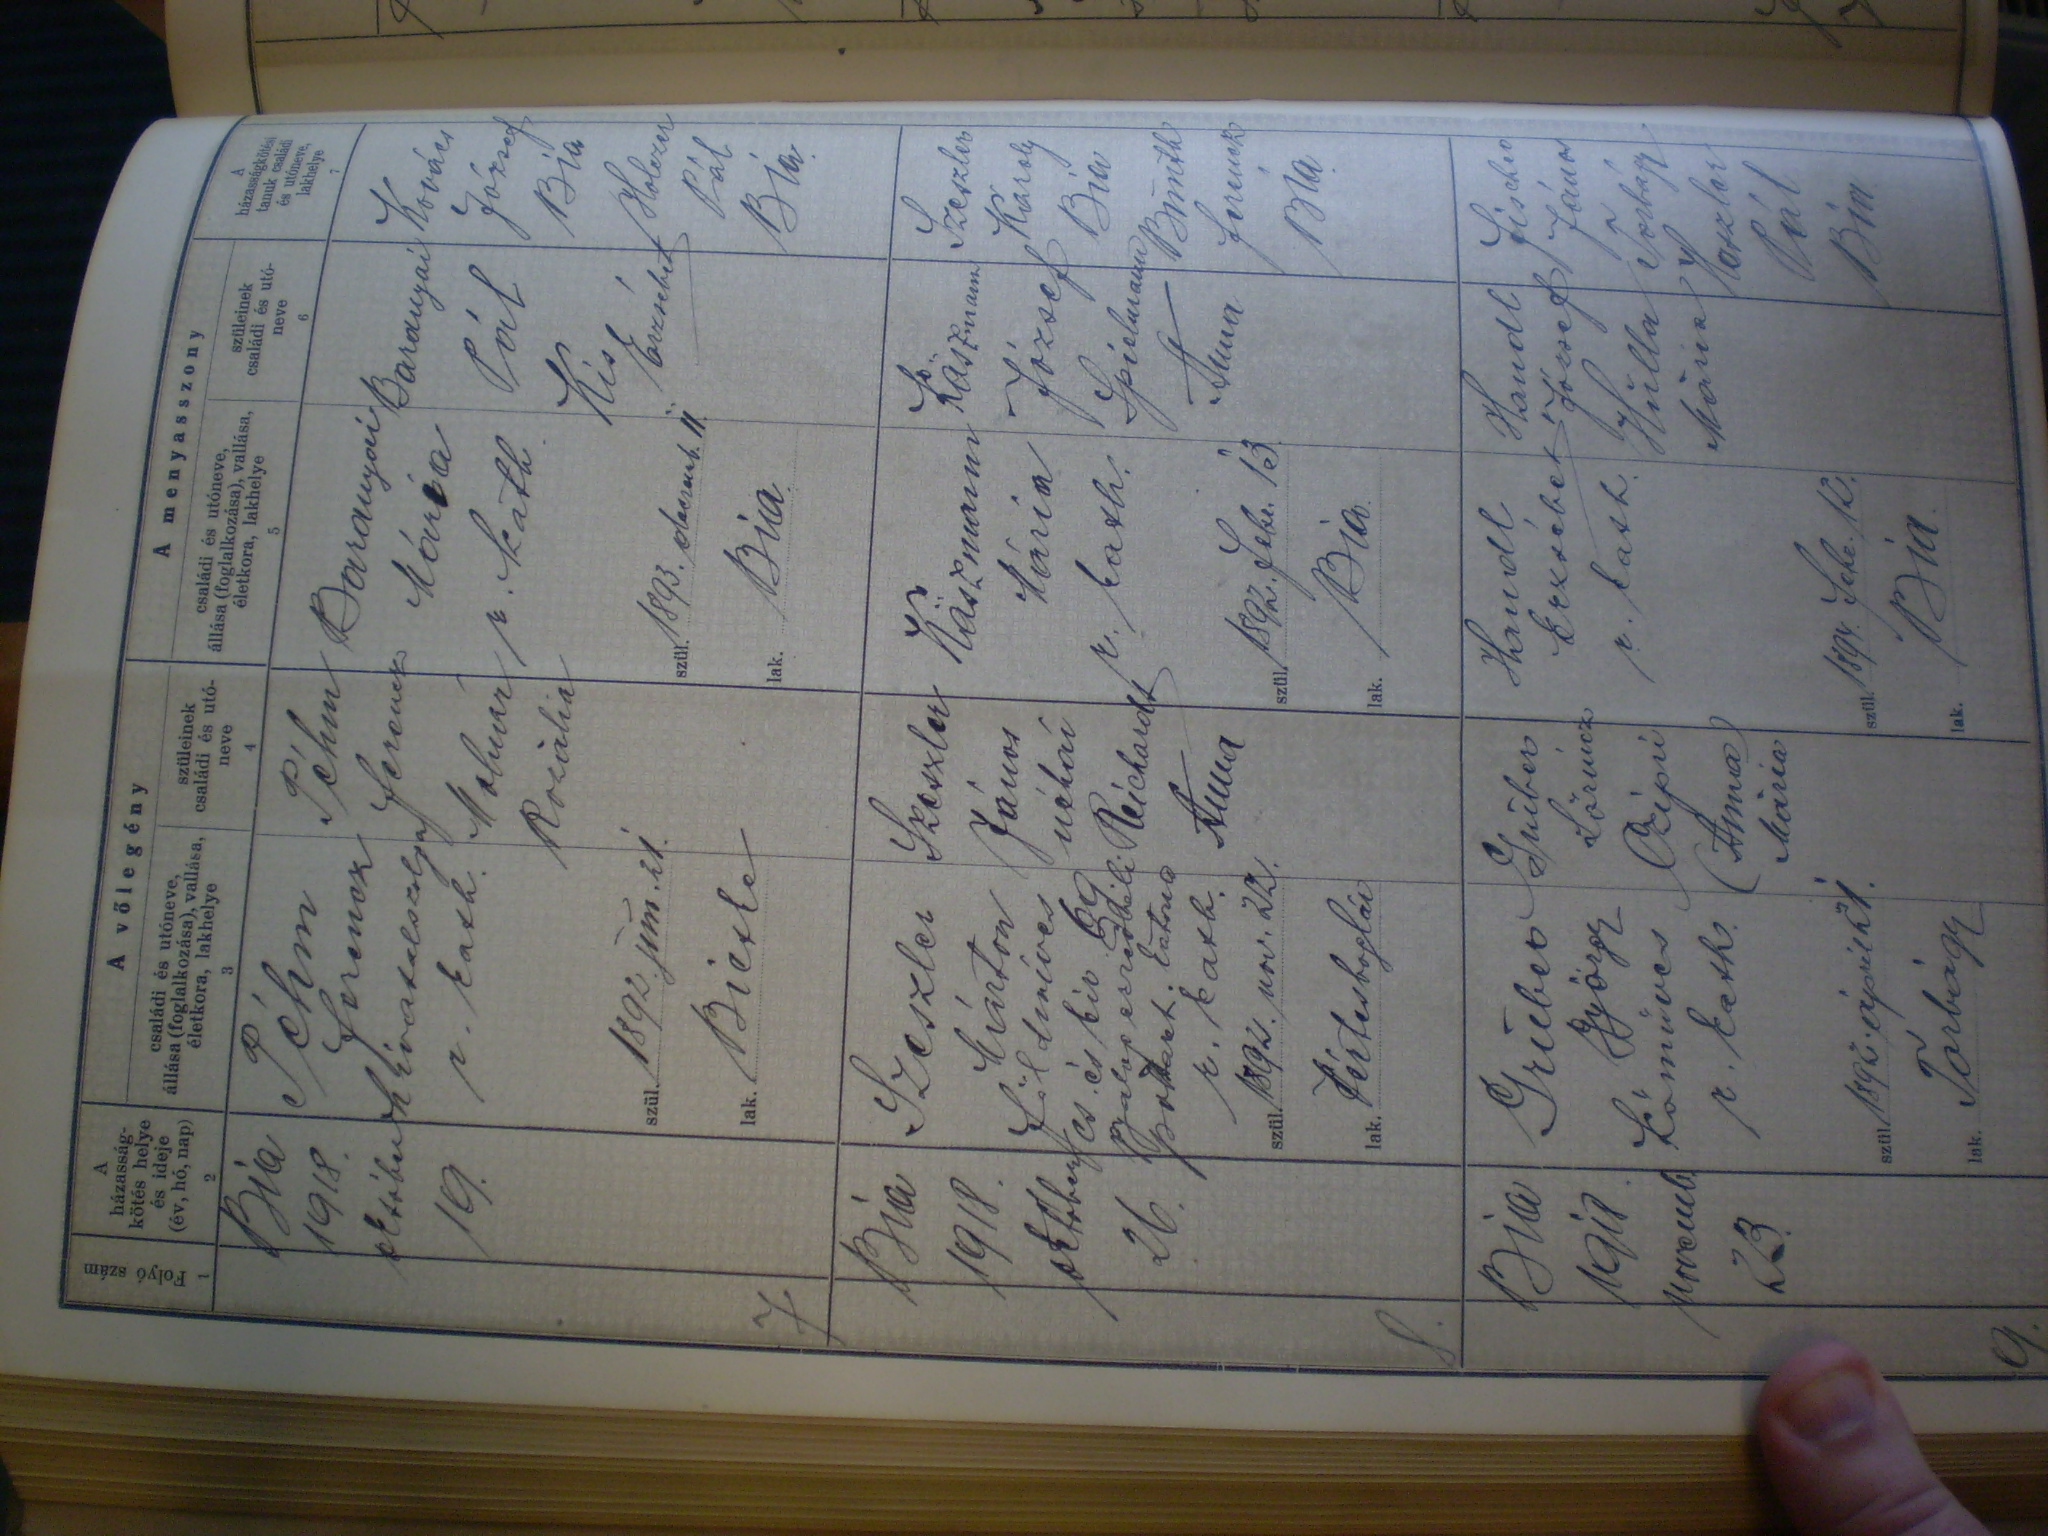 A vőlegény
A menyasszony
Folyó szám
A házasság-
kötés helye
és ideje
(év, hó, nap)
családi és utóneve,
állása (foglalkozása), vallása,
életkora, lakhelye
szüleinek
családi és utó-
neve
családi és utóneve,
állása (foglalkozása), vallása,
életkora, lakhelye
szüleinek
családi és utó-
neve
A
házasságkötési
tanuk családi
és utóneve,
lakhelye
1
2
3
4
5
6
7
7
Bia
1918.
október
19.
Péhm
Ferencz
r. kath.
szül. 1892. jún. 21.
lak. Bicske
Péhm
Ferencz
Molnár
Rozália
Baranyai
Mária
r. kath.
szül. 1893. decemb. 11.
lak. Bia
Baranyai
Pál
Kis
Erzsébet
Kovács
József
Bia
Holczer
Pál
Bia.
8.
Bia
1918.
október
26.
Szeszler
Márton
földmíves
cs. és kir. 69
gyalogezredbeli
katona
r. kath.
szül. 1892. nov. 22.
lak. Vértesboglár
Szeszler
János
néhai
Reichardt
Anna
Kászmann
Mária
r. kath.
szül. 1892. Febr. 13.
lak. Bia.
Kászmann
József
Spielmann
Anna
Szeszler
Károly
Bia
Ferencz
Bia.
9.
Bia
1918.
novemb.
23.
György
kőműves
r. kath.
szül. 1892. április 21.
lak. Torbágy
Lőrincz
Czipri
(Anna)
Mária
Handl
Erzsébet
r. kath.
szül. 1894. Febr. 12.
lak. Bia.
Handl
József
Hulla
Mária
Fischer
János
Torbágy
Koszler
Pál
Bia